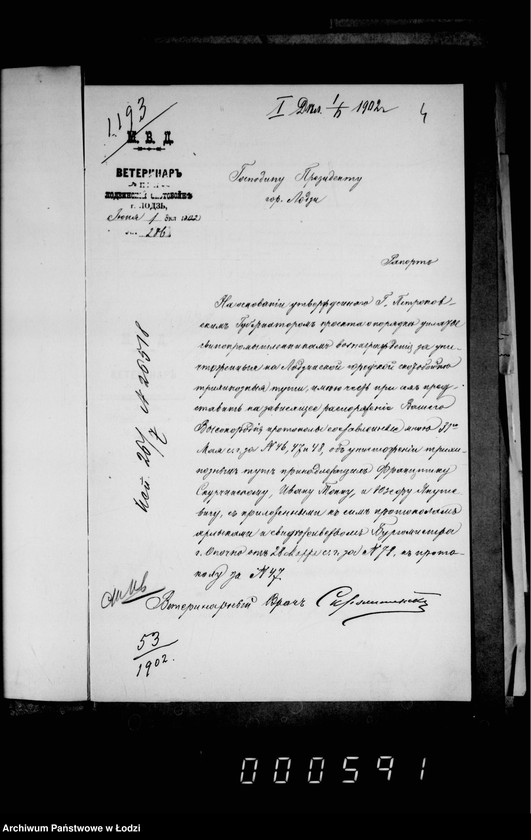 1193
I Дкл. 1902 г
4
М. В. Д.
ВЕТЕРИНАРЪ
г. ЛОДЗЬ,
Іюня 1 дня 1902
286
Господину Президенту
гор. Лодзи
Рапортъ
На основаніи утвержденнаго Г. Петроков-
скимъ Губернаторомъ проекта о порядкѣ уплаты
свинопромышленникамъ вознагражденія за уни-
чтоженныя на Лодзинской городской скотобойнѣ
трихинозныя туши, имѣю честь при семъ пред-
ставить на зависящее распоряженіе Вашего
Высокородія протоколы составленные мною 31го
Мая с. г. за № 46, 47 и 48, объ уничтоженіи трихи-
нозныхъ тушъ принадлежащихъ Францишку
Ивану и
съ приложенными къ симъ протоколамъ
ярлыками и свидѣтельствомъ Бурмистра
г. Опочно отъ 28 с. г. за № 79, къ прото-
колу за № 47.
Ветеринарный Врачъ
№ 20518
53
1902.
000591
Archiwum Państwowe w Łodzi